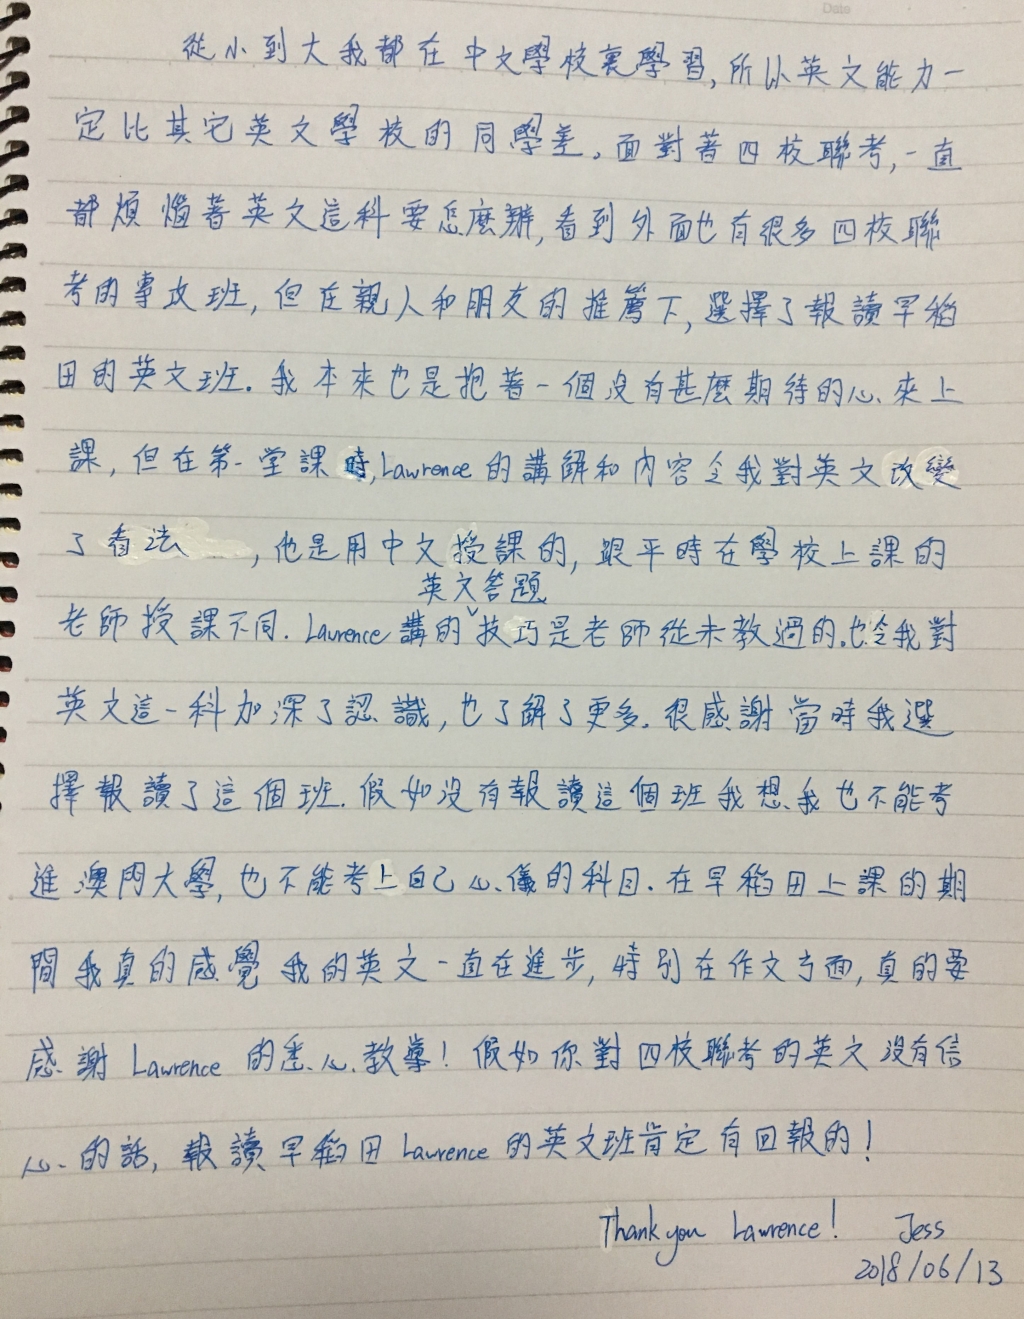 Date
從小到大我都在中文學校裏學習,所以英文能力一
定比其它英文學校的同學差。面對著四校聯考,一直
都煩惱著英文這科要怎麼辦,看到外面也有很多四校聯
考的專攻班,但在親人和朋友的推薦下,選擇了報讀早稻
田的英文班.我本來也是抱著一個沒有甚麼期待的心來上
課,但在第一堂課時,Lawrence的講解和內容令我對英文改變
了看法,他是用中文授課的,跟平時在學校上課的
英文答題
老師授課不同.Lawrence講的技巧是老師從未教過的.也令我對
英文這一科加深了認識,也了解了更多.很感謝當時我選
擇報讀了這個班.假如沒有報讀這個班我想我也不能考
進澳門大學,也不能考上自己心儀的科目.在早稻田上課的期
間我真的感覺我的英文一直在進步,特別在作文方面,真的要
感謝Lawrence的悉心教導!假如你對四校聯考的英文沒有信
心的話,報讀早稻田Lawrence的英文班肯定有回報的!
Thank you Lawrence! Jess
2018/06/13